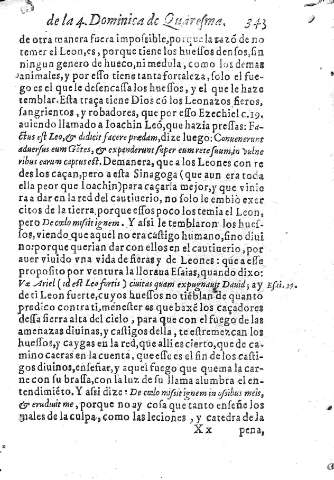 de la 4. Dominica de Quaresma. 343
de otra manera fuera impossible, porque la razõ de no
temer el Leon, es, porque tiene los huessos densos, sin
ningun genero de hueco, ni medula, como los demas
animales, y por esso tiene tanta fortaleza, solo el fue-
go es el que le desencassa los huessos, y el que le haze
temblar. Esta traça tiene Dios cõ los Leonazos fieros,
sangrientos, y robadores, que por esso Ezechiel c. 19.
auiendo llamado a Ioachin Leõ, que hazia pressas: Fa-
ctus est Leo, & didicit facere prædam, dize luego: Conuenerunt
aduersus eum Gẽtes, & expanderunt super eum rete suum, in vulne
ribus earum captus est. Demanera, que a los Leones con re
des los caçan, pero a esta Sinagoga (que aun era toda
ella peor que Ioachin) para caçarla mejor, y que vinie
ra a dar en la red del cautiuerio, no solo le embiò exer
citos de la tierra, porque essos poco los temia el Leon,
pero De cœlo misit ignem. Y assi le temblaron los hues-
sos, viendo que aquel no era castigo humano, sino diui
no: porque querian dar con ellos en el cautiuerio, por
auer viuido vna vida de fieras y de Leones: que a esse
proposito por ventura la lloraua Esaias, quando dixo:
Væ Ariel (id est Leo fortis) ciuitas quam expugnauit Dauid; ay Esai. 29.
de ti Leon fuerte, cuyos huessos no tiẽblan de quanto
predico contra ti, menester es que baxẽ los caçadores
dessa sierra alta del cielo, para que con el fuego de las
amenazas diuinas, y castigos della, te estremezcan los
huessos, y caygas en la red, que alli es cierto, que de ca-
mino caeras en la cuenta, que esse es el fin de los casti-
gos diuinos, enseñar, y aquel fuego que quema la car-
ne con su brassa, con la luz de su llama alumbra el en-
tendimiẽto. Y assi dize: De cœlo misit ignem in ossibus meis,
& erudiuit me, porque no ay cosa que tanto enseñe los
males de la culpa, como las leciones, y catedra de la
X x pena,